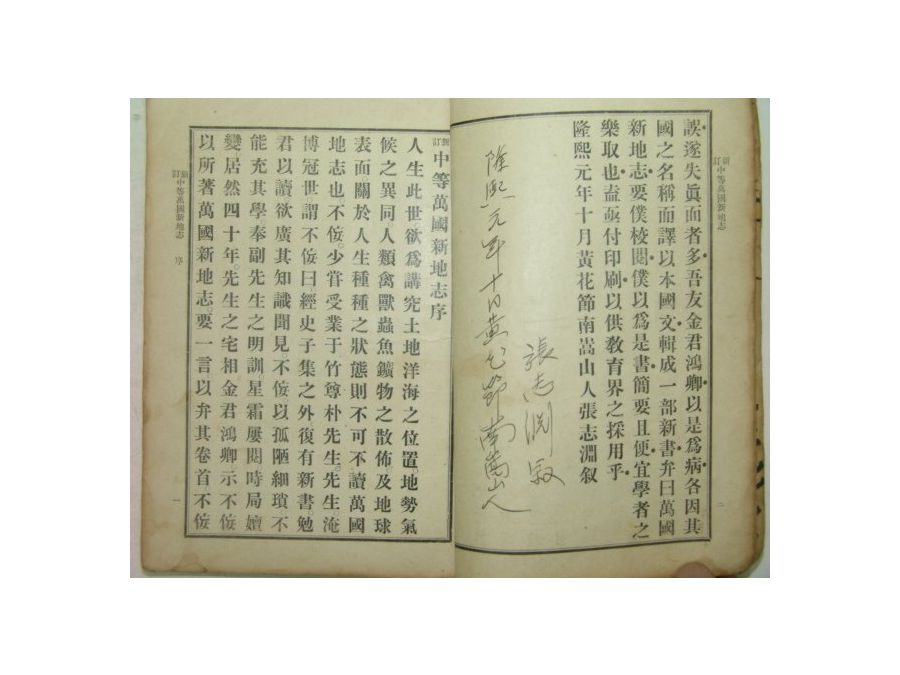 誤遂失眞面者多吾友金君鴻卿以是爲病各因其
國之名稱而譯以本國文輯成一部新書弁曰萬國
新地志要僕校閱僕以爲是書簡要且便宜學者之
樂取也盍亟付印刷以供教育界之採用乎
隆熙元年十月黃花節南嵩山人張志淵叙
張志淵叙
隆熙元年十月黃花節南嵩山人
新訂中等萬國新地志
二
新訂中等萬國新地志序
人生此世欲爲講究土地洋海之位置地勢氣
候之異同人類禽獸蟲魚鑛物之散佈及地球
表面關於人生種種之狀態則不可不讀萬國
地志也不侫少甞受業于竹尊朴先生先生淹
博冠世謂不侫曰經史子集之外復有新書勉
君以讀欲廣其知識聞見不侫以孤陋細瑣不
能充其學奉副先生之明訓星霜屢閱時局嬗
變居然四十年先生之宅相金君鴻卿示不侫
以所著萬國新地志要一言以弁其卷首不侫
新訂中等萬國新地志 序
一